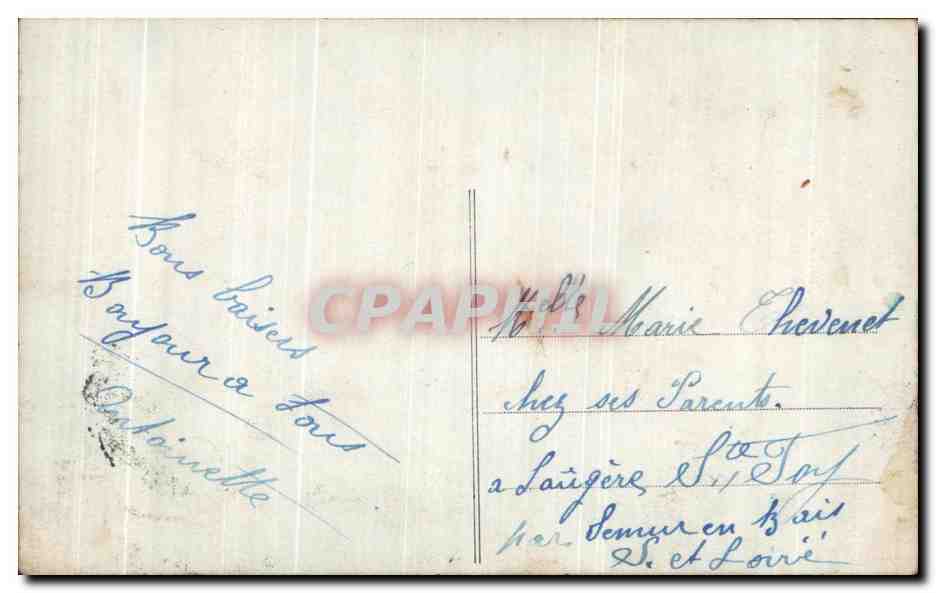 Bons baisers
Bonjour a tous
Antoinette
CPAPHIL
Melle Marie Thevenet
chez ses Parents.
a Saugère Ste Foy
par Semur en Bais
S. et Loire